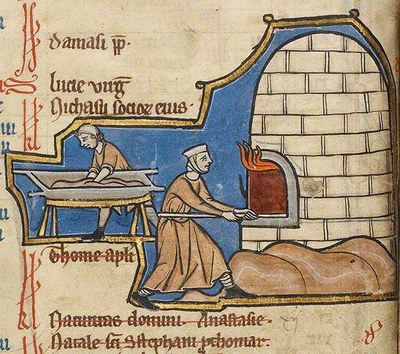 damasi pp.
lucie virg
Nichasii socior eius.
Thome apli
Natiuitas domini. Anastasie.
Natale sci Stephani pthomar.